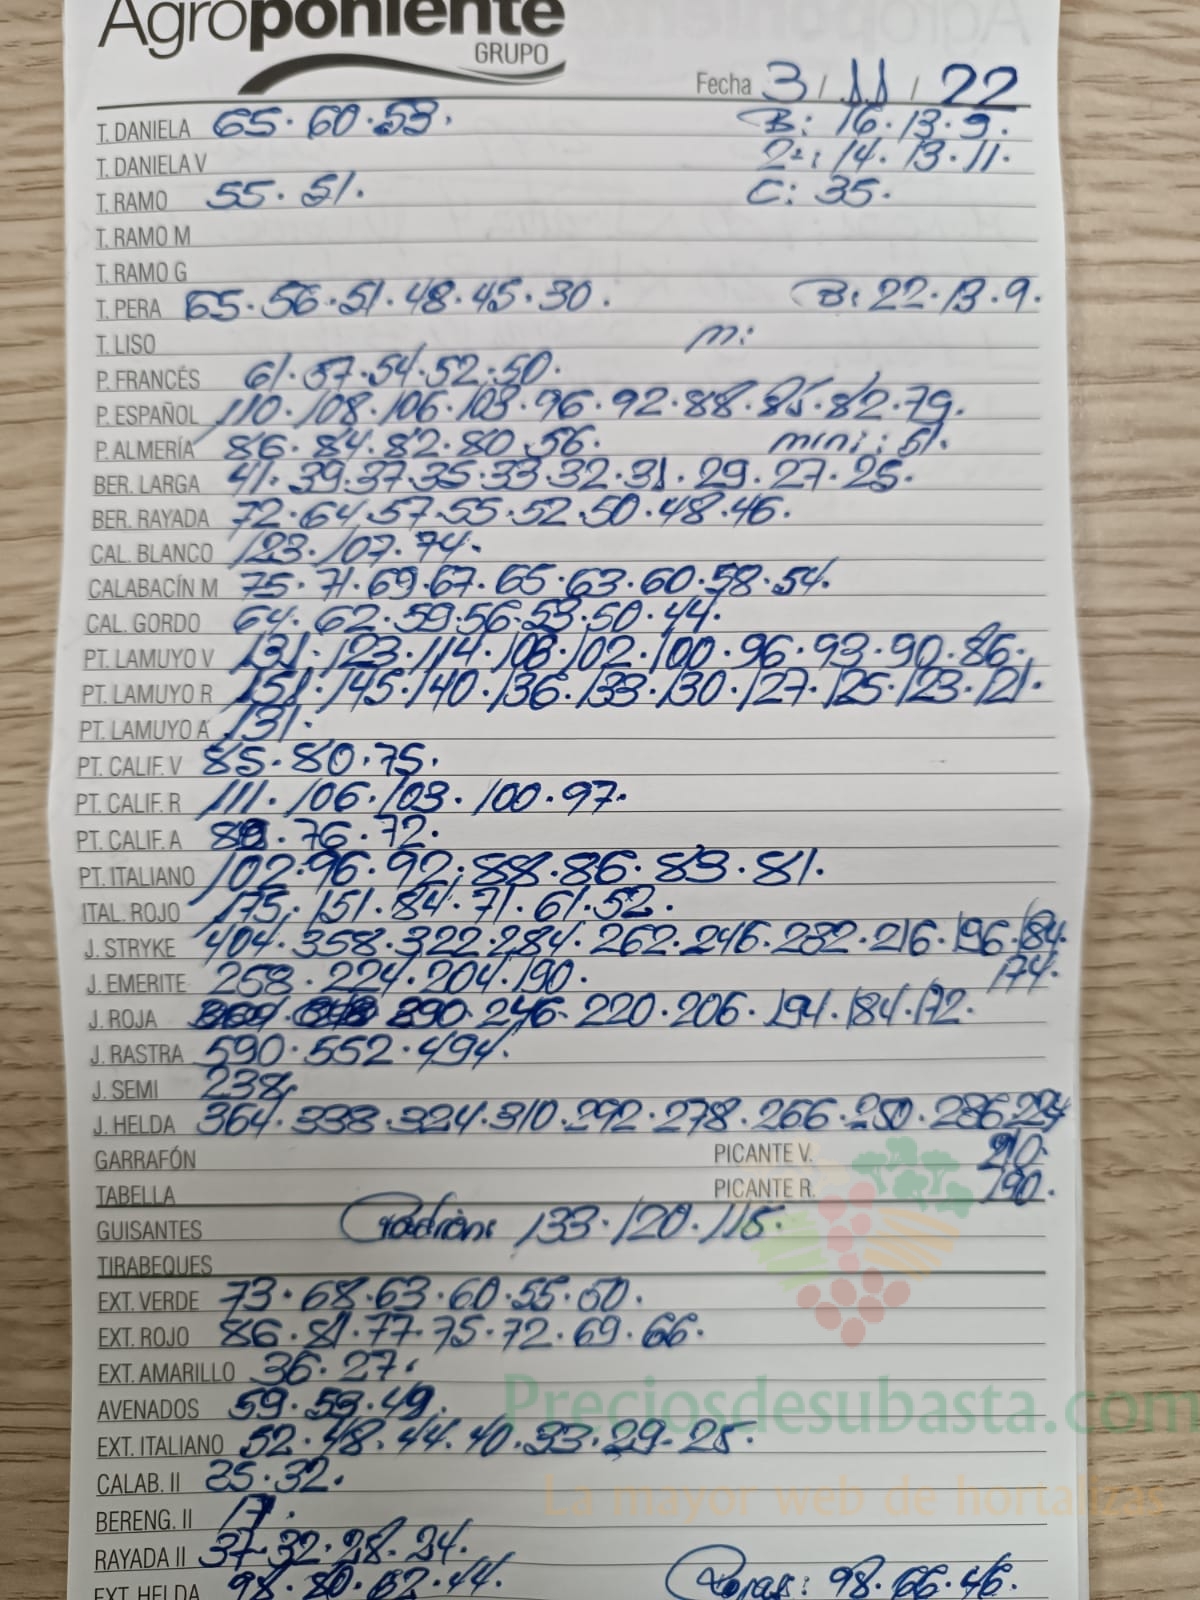 Agroponiente
GRUPO
Fecha 3 / 11 / 22
T. DANIELA 65. 60. 53. B: 16. 13. 9.
T. DANIELA V 2ª: 14. 13. 11.
T. RAMO 55. 51. C: 35.
T. RAMO M
T. RAMO G
T. PERA 65. 56. 51. 48. 45. 30. B: 22. 13. 9.
T. LISO m:
P. FRANCÉS 61. 57. 54. 52. 50.
P. ESPAÑOL 110. 108. 106. 103. 96. 92. 88. 85. 82. 79.
P. ALMERÍA 86. 84. 82. 80. 56. mini: 51.
BER. LARGA 41. 39. 37. 35. 33. 32. 31. 29. 27. 25.
BER. RAYADA 72. 64. 57. 55. 52. 50. 48. 46.
CAL. BLANCO 123. 107. 74.
CALABACÍN M 75. 71. 69. 67. 65. 63. 60. 58. 54.
CAL. GORDO 64. 62. 59. 56. 53. 50. 44.
PT. LAMUYO V 131. 123. 114. 108. 102. 100. 96. 93. 90. 86.
PT. LAMUYO R 151. 145. 140. 136. 133. 130. 127. 125. 123. 121.
PT. LAMUYO A 131.
PT. CALIF. V 85. 80. 75.
PT. CALIF. R 111. 106. 103. 100. 97.
PT. CALIF. A 76. 72.
PT. ITALIANO 102. 96. 92. 88. 86. 83. 81.
ITAL. ROJO 175. 151. 84. 71. 61. 52.
J. STRYKE 404. 358. 322. 284. 262. 246. 232. 216. 196. 184.
J. EMERITE 258. 224. 204. 190. 174.
J. ROJA 246. 220. 206. 194. 184. 172.
J. RASTRA 590. 552. 494.
J. SEMI 238.
J. HELDA 364. 338. 324. 310. 292. 278. 266. 250. 236.
GARRAFÓN PICANTE V. 210.
TABELLA PICANTE R. 190.
GUISANTES Padrón: 133. 120. 115.
TIRABEQUES
EXT. VERDE 73. 68. 63. 60. 55. 50.
EXT. ROJO 86. 81. 77. 75. 72. 69. 66.
EXT. AMARILLO 36. 27.
AVENADOS 59. 53. 49.
EXT. ITALIANO 52. 48. 44. 40. 33. 29. 25.
CALAB. II 35. 32.
BERENG. II 17.
RAYADA II 37. 32. 28. 24.
EXT. HELDA 98. 80. 62. 44. Rojas: 98. 66. 46.
Preciosdesubasta.com
La mayor web de hortalizas